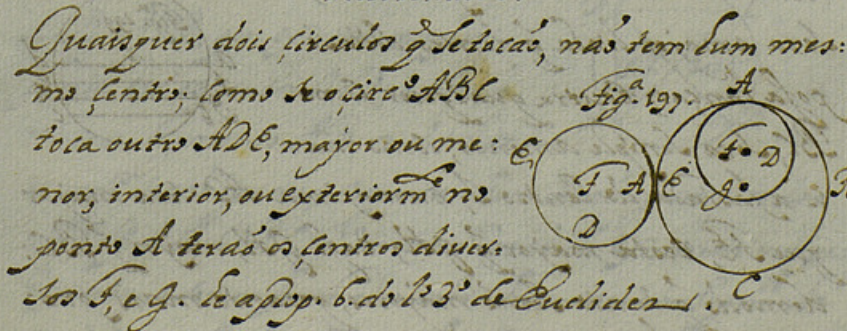 Quaisquer dois circulos q̃ se tocaõ, naõ tem hum mes:
mo centro; como se o circ.º ABC
toca outro ADE, mayor ou me:
nor, interior, ou exteriorm.te no
ponto A teraõ os centros diver:
sos F, e G. he a prop. 6. do l.º 3.º de Euclides.
Fig.ª 197.
A
E
F A
D
E
F D
G
B
C